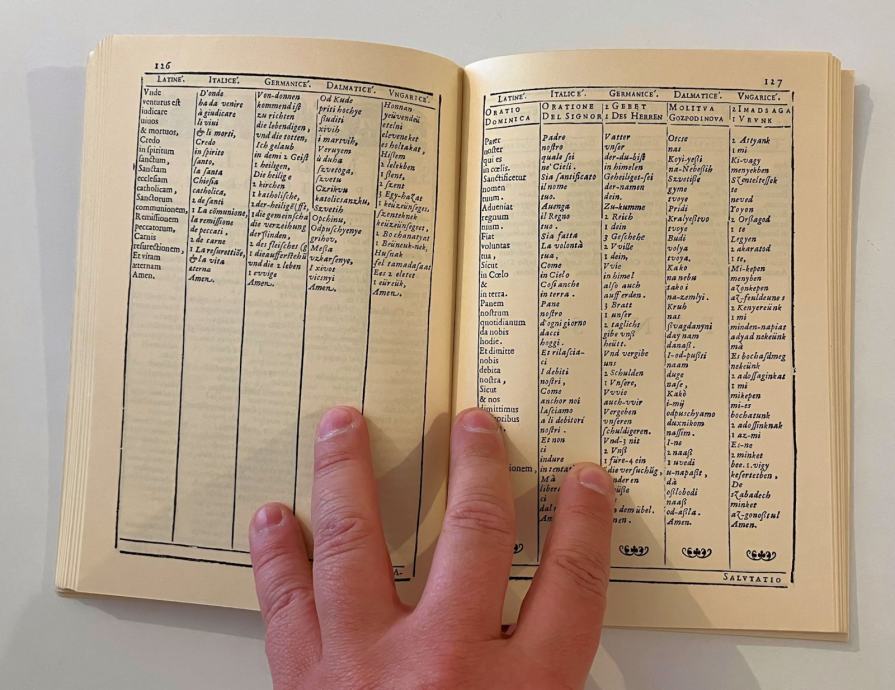 126
LATINE. ITALICE. GERMANICE. DALMATICE. VNGARICE.
Vnde
venturus est
iudicare
viuos
& mortuos,
Credo
in spiritum
sanctum,
Sanctam
ecclesiam
catholicam,
Sanctorum
communionem,
Remissionem
peccatorum,
Carnis
resurectionem,
Et vitam
æternam
Amen.
D'onde
ha da venire
à giudicare
li viui
& li morti,
Credo
in spirito
santo,
la santa
Chiesa
catholica,
2 de santi
1 La cōmunione,
la remissione
de peccati.
2 de carne
1 La resurettiōe,
& la vita
eterna
Amen.
Von-donnen
kommend ist
zu richten
die lebendigen,
vnd die totten,
Ich gelaub
in dem 2 Geist
1 heiligen,
Die heilig
2 kirchen
1 katholische,
1 die gemeinscha
die verzeihung
der sinden,
vnd die 2 leben
1 evvige
Amen.
Od Kude
priti hochye
ssuditi
xivih
i martvih,
Veruyem
ù duha
szvetoga,
szvetu
Czrikvu
katolicsanzku,
Szvetih
Opchinu,
Odpuschyenye
grihov,
Mesa
vzkarsenye,
I xivot
vicsnyi
Amen.
Honnan
yeüvendeü
etelni
eleveneket
es holtakat,
Hissem
2 lelekben
1 ssent,
2 szent
3 Egy-hazat
1 keüzeünseges,
Szenteknek
keüzeünseget,
2 Bochanatyat
1 Beüneuk-nek,
Husnak
fel tamadasaat
Ees 2 eletet
1 eüreük,
Amen.
A-
127
LATINE. ITALICE. GERMANICE. DALMATICE. VNGARICE.
ORATIO
DOMINICA
ORATIONE
DEL SIGNOR
2 GEBET
1 DES HERREN
MOLITVA
GOZPODINOVA
2 IMADSAGA
1 VRVNK
Pater
noster
qui es
in cœlis,
Sanctificetur
nomen
tuum.
Adueniat
regnum
tuum.
Fiat
voluntas
tua,
Sicut
in Cœlo
&
in terra.
Panem
nostrum
quotidianum
da nobis
hodie.
Et dimitte
nobis
debita
nostra,
Sicut
& nos
dimittimus
ionem,
Padre
nostro
quale sei
ne' Cieli.
Sia santificato
il nome
tuo.
Auenga
il Regno
tuo.
Sia fatta
La volontà
tua,
Come
in Cielo
Cosi anche
in terra.
Pane
nostro
d'ogni giorno
dacci
hoggi.
Et rilascia-
ci
I debiti
nostri,
Come
anchor noi
lasciamo
a li debitori
nostri.
Et non
ci
indure
Vatter
vnser
der-du-bist
in himelen
Geheiliget-sei
der-namen
dein.
Zu-kumme
1 Reich
1 dein
3 Geschehe
2 Ville
1 dein,
Vvie
in himel
also auch
auff erden.
3 Bratt
1 unser
2 täglichs
gibe vnss
heütt.
Vnd vergibe
uns
2 Schulden
1 Vnsere,
Vvvie
auch-vvir
Vergeben
vnseren
schuldigeren.
Vnd-3 nit
2 Vnss
1 füre-4 ein
die versuchūg,
dem übel.
Otcse
nas
Koyi-yessi
na-Nebesih
Szvetisse
gyme
tvoye
Pridi
Kralyestvo
tvoye
Budi
volya
tvoya.
Kako
na nebu
tako i
na-zemlyi.
Kruh
nas
ssvagdanyni
day nam
danass.
I-od-pussti
naam
duge
nase,
Kakò
i-mij
odpuschyamo
duxnikom
nassim.
I-ne
2 naass
1 uvedi
u-napasst,
dà
osslobodi
naass
od-assla.
Amen.
2 Astyank
1 mi
Ki-vagy
menyekben
Szenteltessek
te
neved
Toyon
2 Orszagod
1 te
Legyen
2 akaratod
1 te,
Mi-kepen
menyben
azonkepen
az-feuldeunes
2 Kenyereünk
1 mi
minden-napiat
adyad nekeünk
mà
Es bochasdmeg
nekeünk
2 adossaginkat
1 mi
mikepen
mi-es
bochatunk
2 adossinknak
1 az-mi
Es-ne
2 minket
bee. 1. vigy
kesertetben,
De
szabadech
minket
az-gonosstul
Amen.
SALVTATIO